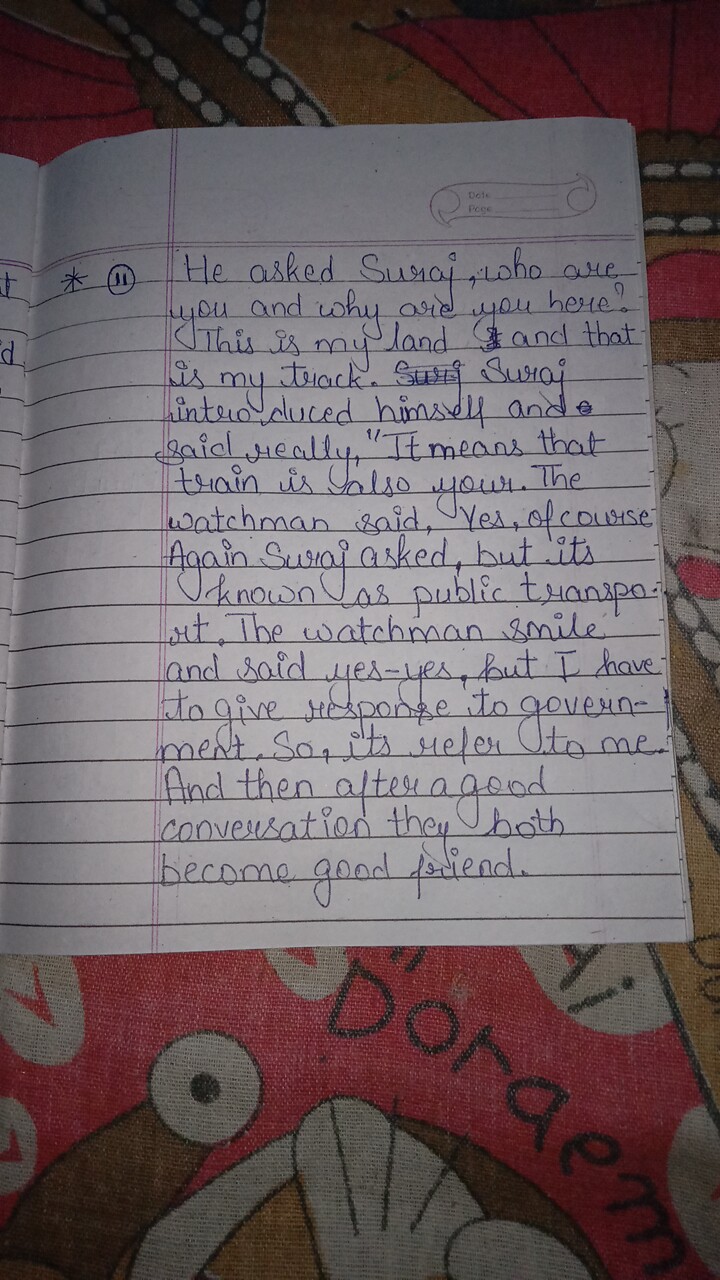 Date
Page
* 11 He asked Suraj, who are
you and why are you here?
This is my land and that
is my track. Suraj
introduced himself and
said really, "It means that
train is also your. The
watchman said, Yes, of course
Again Suraj asked, but its
known as public transpo-
rt. The watchman smile
and said yes-yes, but I have
to give response to govern-
ment. So, its refer to me.
And then after a good
conversation they both
become good friend.
t
d
Doraem